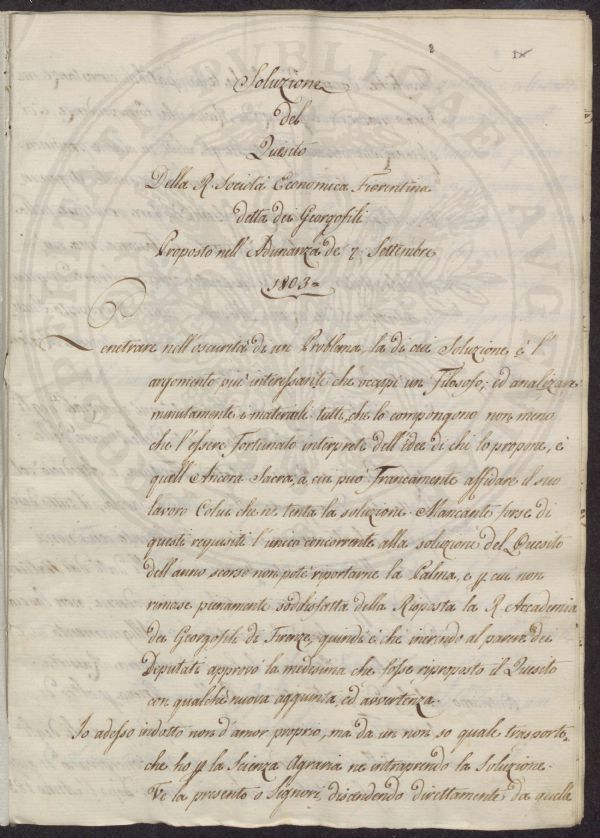 1
Soluzione
del
Quesito
Della R. Società Economica Fiorentina
detta dei Georgofili
Proposto nell'Adunanza de' 7 Settembre
1803=
Penetrare nell'oscurità di un Problema, la di cui Soluzione è l'
argomento più interessante che occupi un Filosofo; ed analizzare
minutamente i materiali tutti, che lo compongono non meno
che l'essere Fortunato interprete dell'idee di chi lo propone, è
quell'Ancora Sacra, a cui può francamente affidare il suo
lavoro Colui che ne tenta la soluzione. Mancante forse di
questi requisiti l'unico concorrente alla soluzione del Quesito
dell'anno scorso non potè riportarne la Palma, e p. cui non
rimase pienamente soddisfatta della Risposta la R. Accademia
dei Georgofili di Firenze, quindi è che inerendo al parere dei
Deputati approvò la medesima che fosse riproposto il Quesito
con qualche nuova aggiunta, ed avvertenza.
Io adesso indotto non d'amor proprio, ma da un non so quale trasporto,
che ho p. la Scienza Agraria ne intraprendo la Soluzione.
Ve la presento o Signori, discendendo direttamente da quella